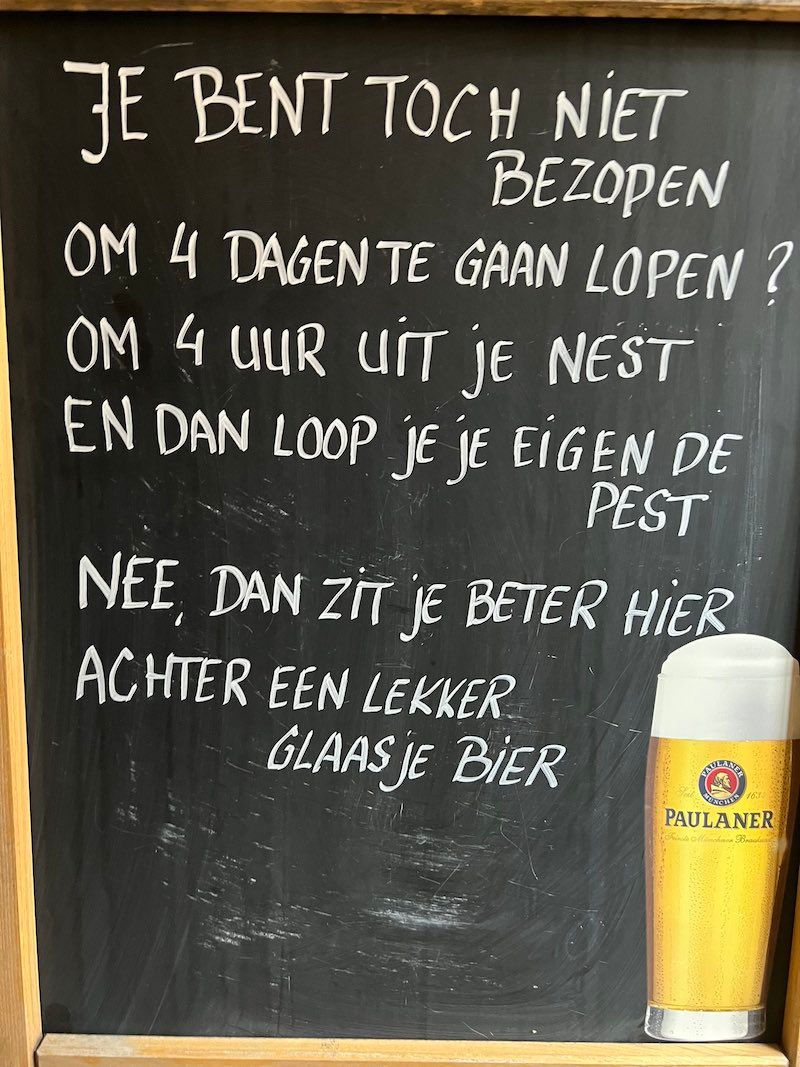 JE BENT TOCH NIET
BEZOPEN
OM 4 DAGEN TE GAAN LOPEN ?
OM 4 UUR UIT JE NEST
EN DAN LOOP JE JE EIGEN DE
PEST
NEE, DAN ZIT JE BETER HIER
ACHTER EEN LEKKER
GLAASJE BIER
PAULANER
MÜNCHEN
PAULANER